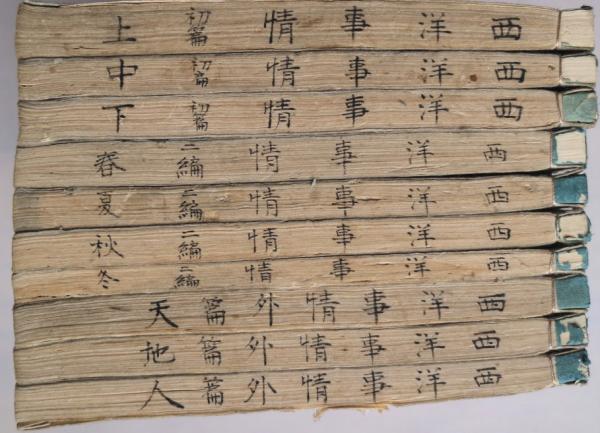 西洋事情初篇上
西洋事情初篇中
西洋事情初篇下
西洋事情二編春
西洋事情二編夏
西洋事情二編秋
西洋事情二編冬
西洋事情外篇天
西洋事情外篇地
西洋事情外篇人